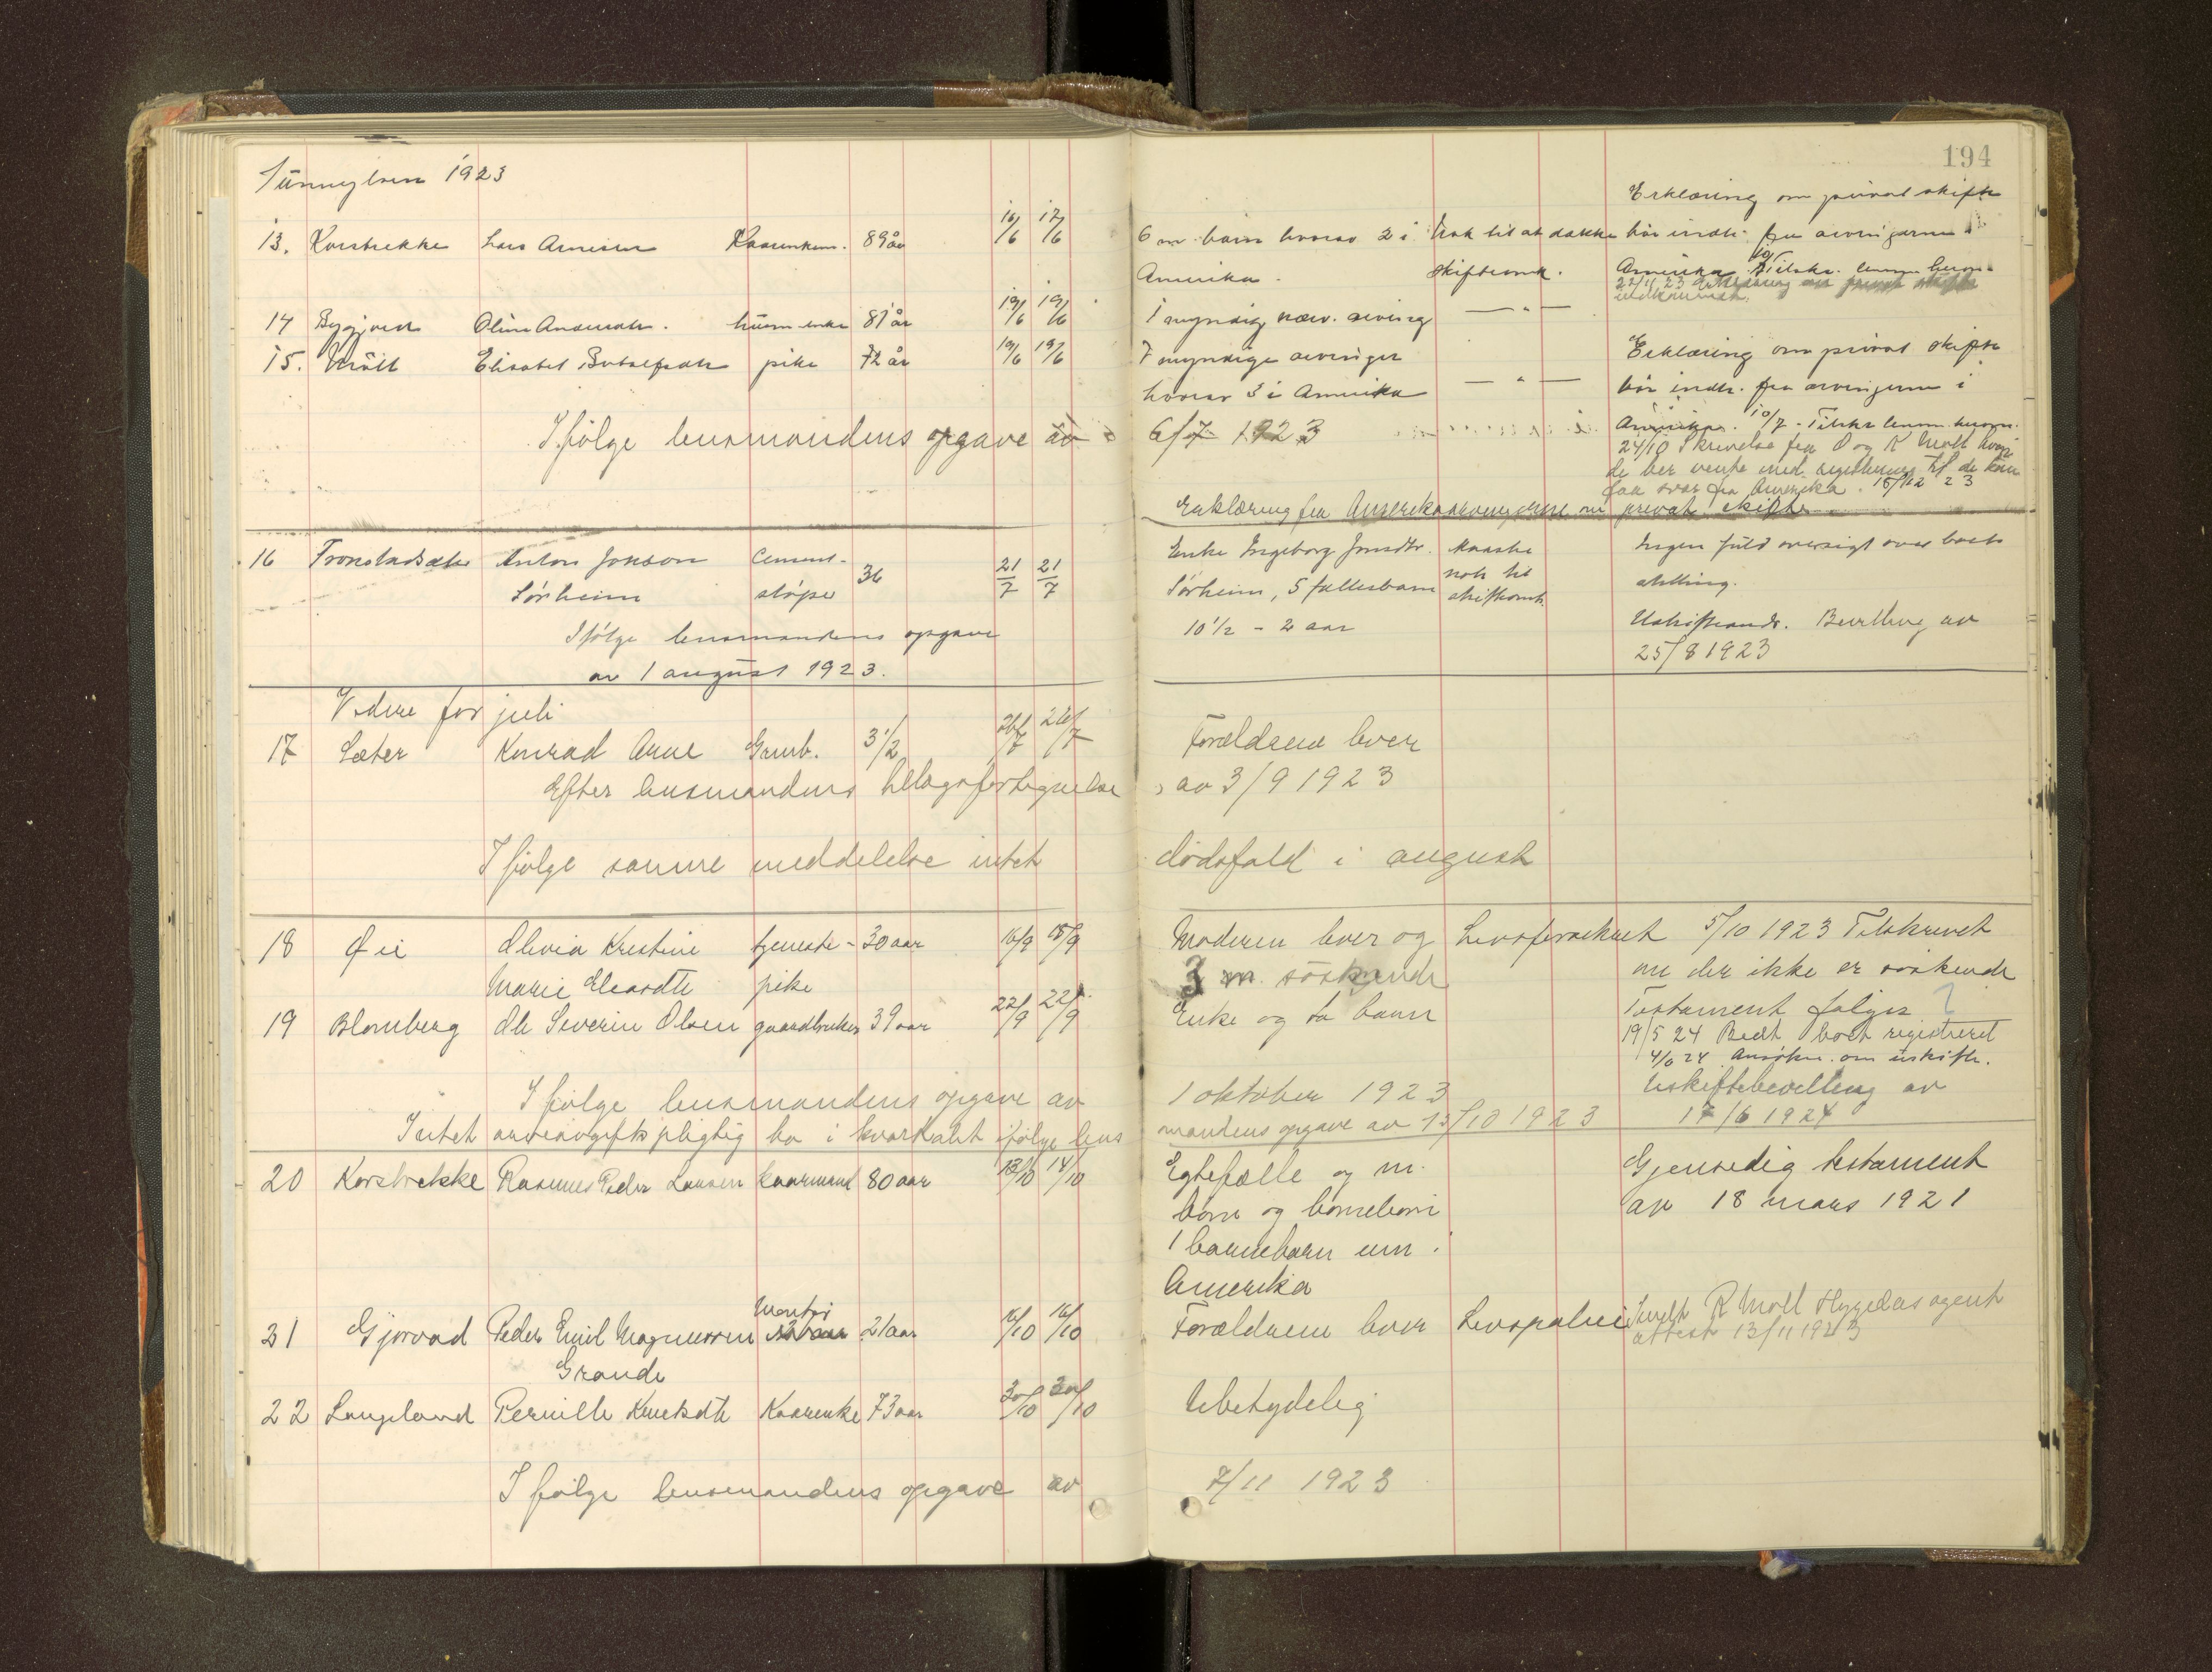 194
Sunnylven 1923
Erklæring om privat skifte
13. Korsbrekke Lars Arnesen 89 år 16/6 17/6 6 m. barn hvorav 2 i Nok til at dække bør indh. fra arvingerne i
Amerika. skifteomk. Amerika 10/7 Tilskr. lensm. herom.
22/11 23 Erklæring om privat skifte
indkommet.
14 Bygjorden Oline Andersdtr. husm enke 81 år 19/6 19/6 1 myndig nærv. arving — " —
15. Möll Elisabet Botolfsdtr pike 72 år 19/6 19/6 7 myndige arvinger Erklæring om privat skifte
hvorav 3 i Amerika — " — bör indh. fra arvingerne i
Ifölge lensmandens opgave av 6/7 1923 Amerika. 10/7 - Tilskr lensm. herom.
24/10 Skrivelse fra O og K Möll hvori
de ber vente med registrering til de kan
faa svar fra Amerika. 15/12 23
Erklæring fra Amerikaarvingerne om privat skifte
16 Tronstadsæter Anton Jonson Cement- 36 21/7 21/7 Enke Ingeborg Jonsdtr. Maaske Ingen fuld oversigt over boets
Sörheim støper Sørheim, 5 fællesbarn nok til skifteomk. stilling.
Ifölge lensmandens opgave 10 1/2 - 2 aar Uskifteandr. Bevilling av
av 1 august 1923. 25/8 1923
Videre for juli
17 Sæter Konrad Arne Gaardb. 3 1/2 26/7 26/7 Forældrene lever
Efter lensmandens tillægsfortegnelse av 3/9 1923
Ifølge samme meddelelse intet dödsfald i august
18 Øie Olivia Kristine tjeneste- 30 aar 16/9 18/9 Moderen lever og Livsforsikret 5/10 1923 Tilskrevet
Marie Eleasdtr pike 3 m. söskende om der ikke er söskende
19 Blomberg Ole Severin Olsen gaardbruker 39 aar 22/9 22/9 Enke og to barn Testament følger ?
19/5 24 Bedt boet registreret
4/6 24 Ansökn. om uskifte.
Ifølge lensmandens opgave av 1 oktober 1923 Uskiftebevilling av
Intet arveavgiftspligtig bo i kvartalet ifølge lensmandens opgave av 13/10 1923 17/6 1924
20 Korsbrekke Rasmus Peder Larsen kaarmand 80 aar 13/10 14/10 Egtefælle og m. Gjensidig testament
barn og barnebarn av 18 mars 1921
1 barnebarn um i
Amerika
21 Gjørvad Peder Emil Magnussen Montør 21 aar 16/10 16/10 Forældrene lever Livspolice Sendt R Möll Hygeas agent
Grande attest 13/11 1923
22 Langeland Pernille Knutsdtr Kaarenke 73 aar 30/10 30/10 Ubetydelig
Ifølge lensmandens opgave av 7/11 1923